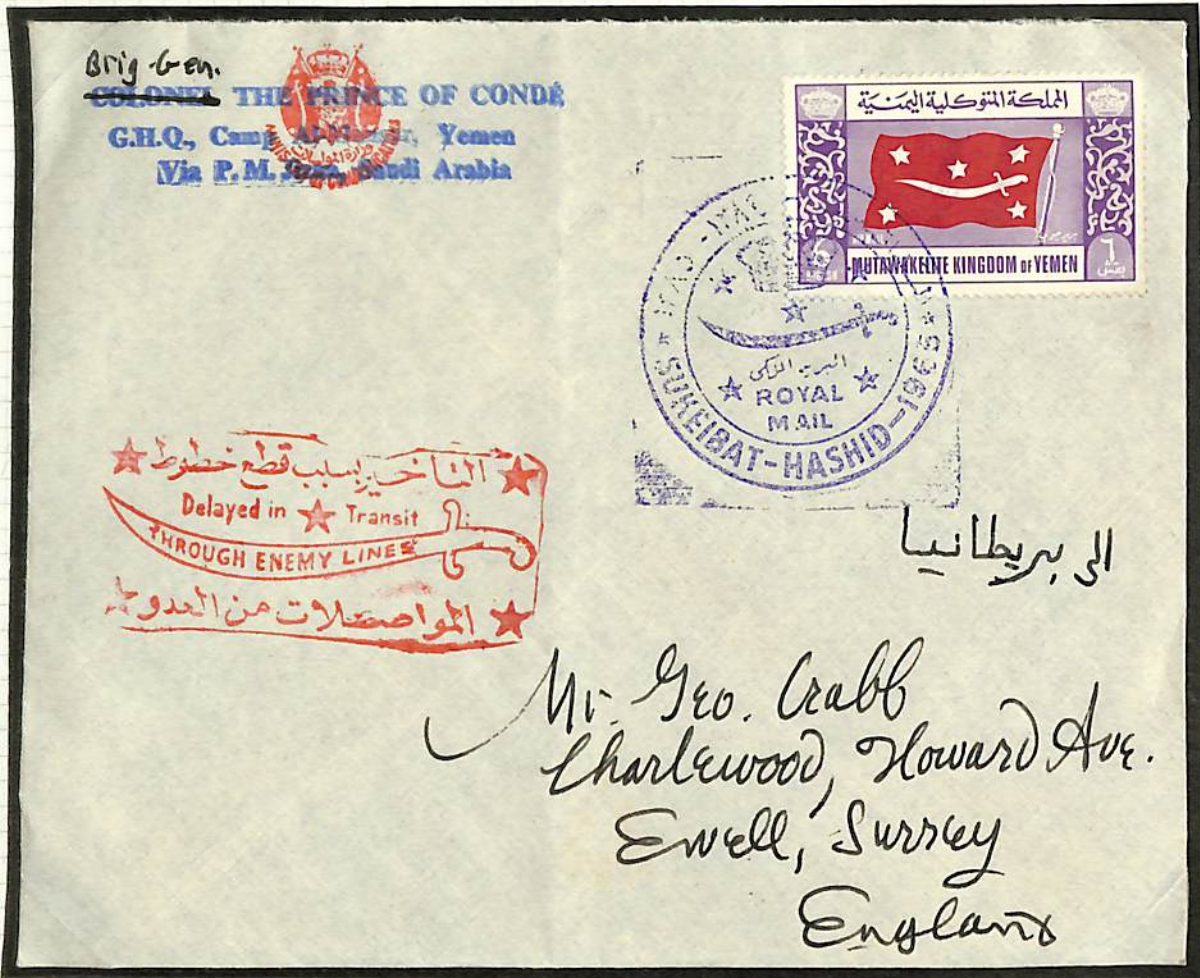 Brig-Gen.
COLONEL THE PRINCE OF CONDÉ
G.H.Q., Camp Al-Mansur, Yemen
Via P.M. Jizan, Saudi Arabia
وزارة المواصلات
المملكة المتوكلية اليمنية
6
٦
بقش
MUTAWAKELITE KINGDOM OF YEMEN
١٣٨٥
البريد الملكي
ROYAL
MAIL
SUKEIBAT-HASHID-1965
التأخير بسبب قطع خطوط
Delayed in Transit
THROUGH ENEMY LINES
المواصلات من العدو
الى بريطانيا
Mr. Geo. Crabb
Charlewood, Howard Ave.
Ewell, Surrey
England